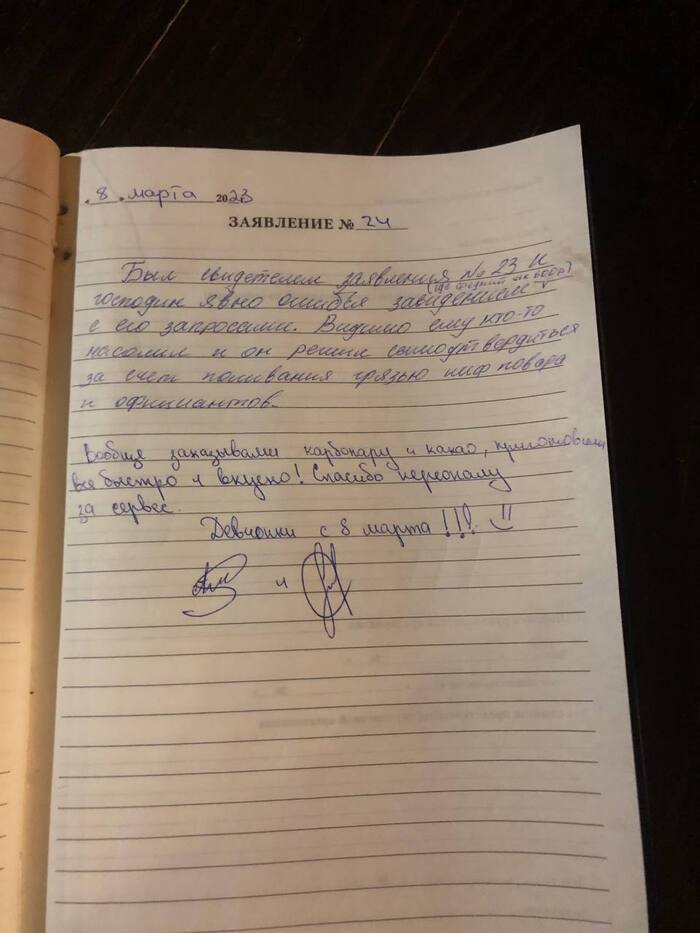 8 марта 2023
ЗАЯВЛЕНИЕ № 24
Был свидетелем заявления № 23 и
(где бедный на 600р)
господин явно ошибся заведением
с его запросами. Видимо ему кто-то
насолил и он решил самоутвердиться
за счет поливания грязью шиф повара
и официантов.
Вообще заказывали карбонару и какао, приготовили
все быстро и вкусно! Спасибо персоналу
за сервес.
Девчонки с 8 марта!!!
и